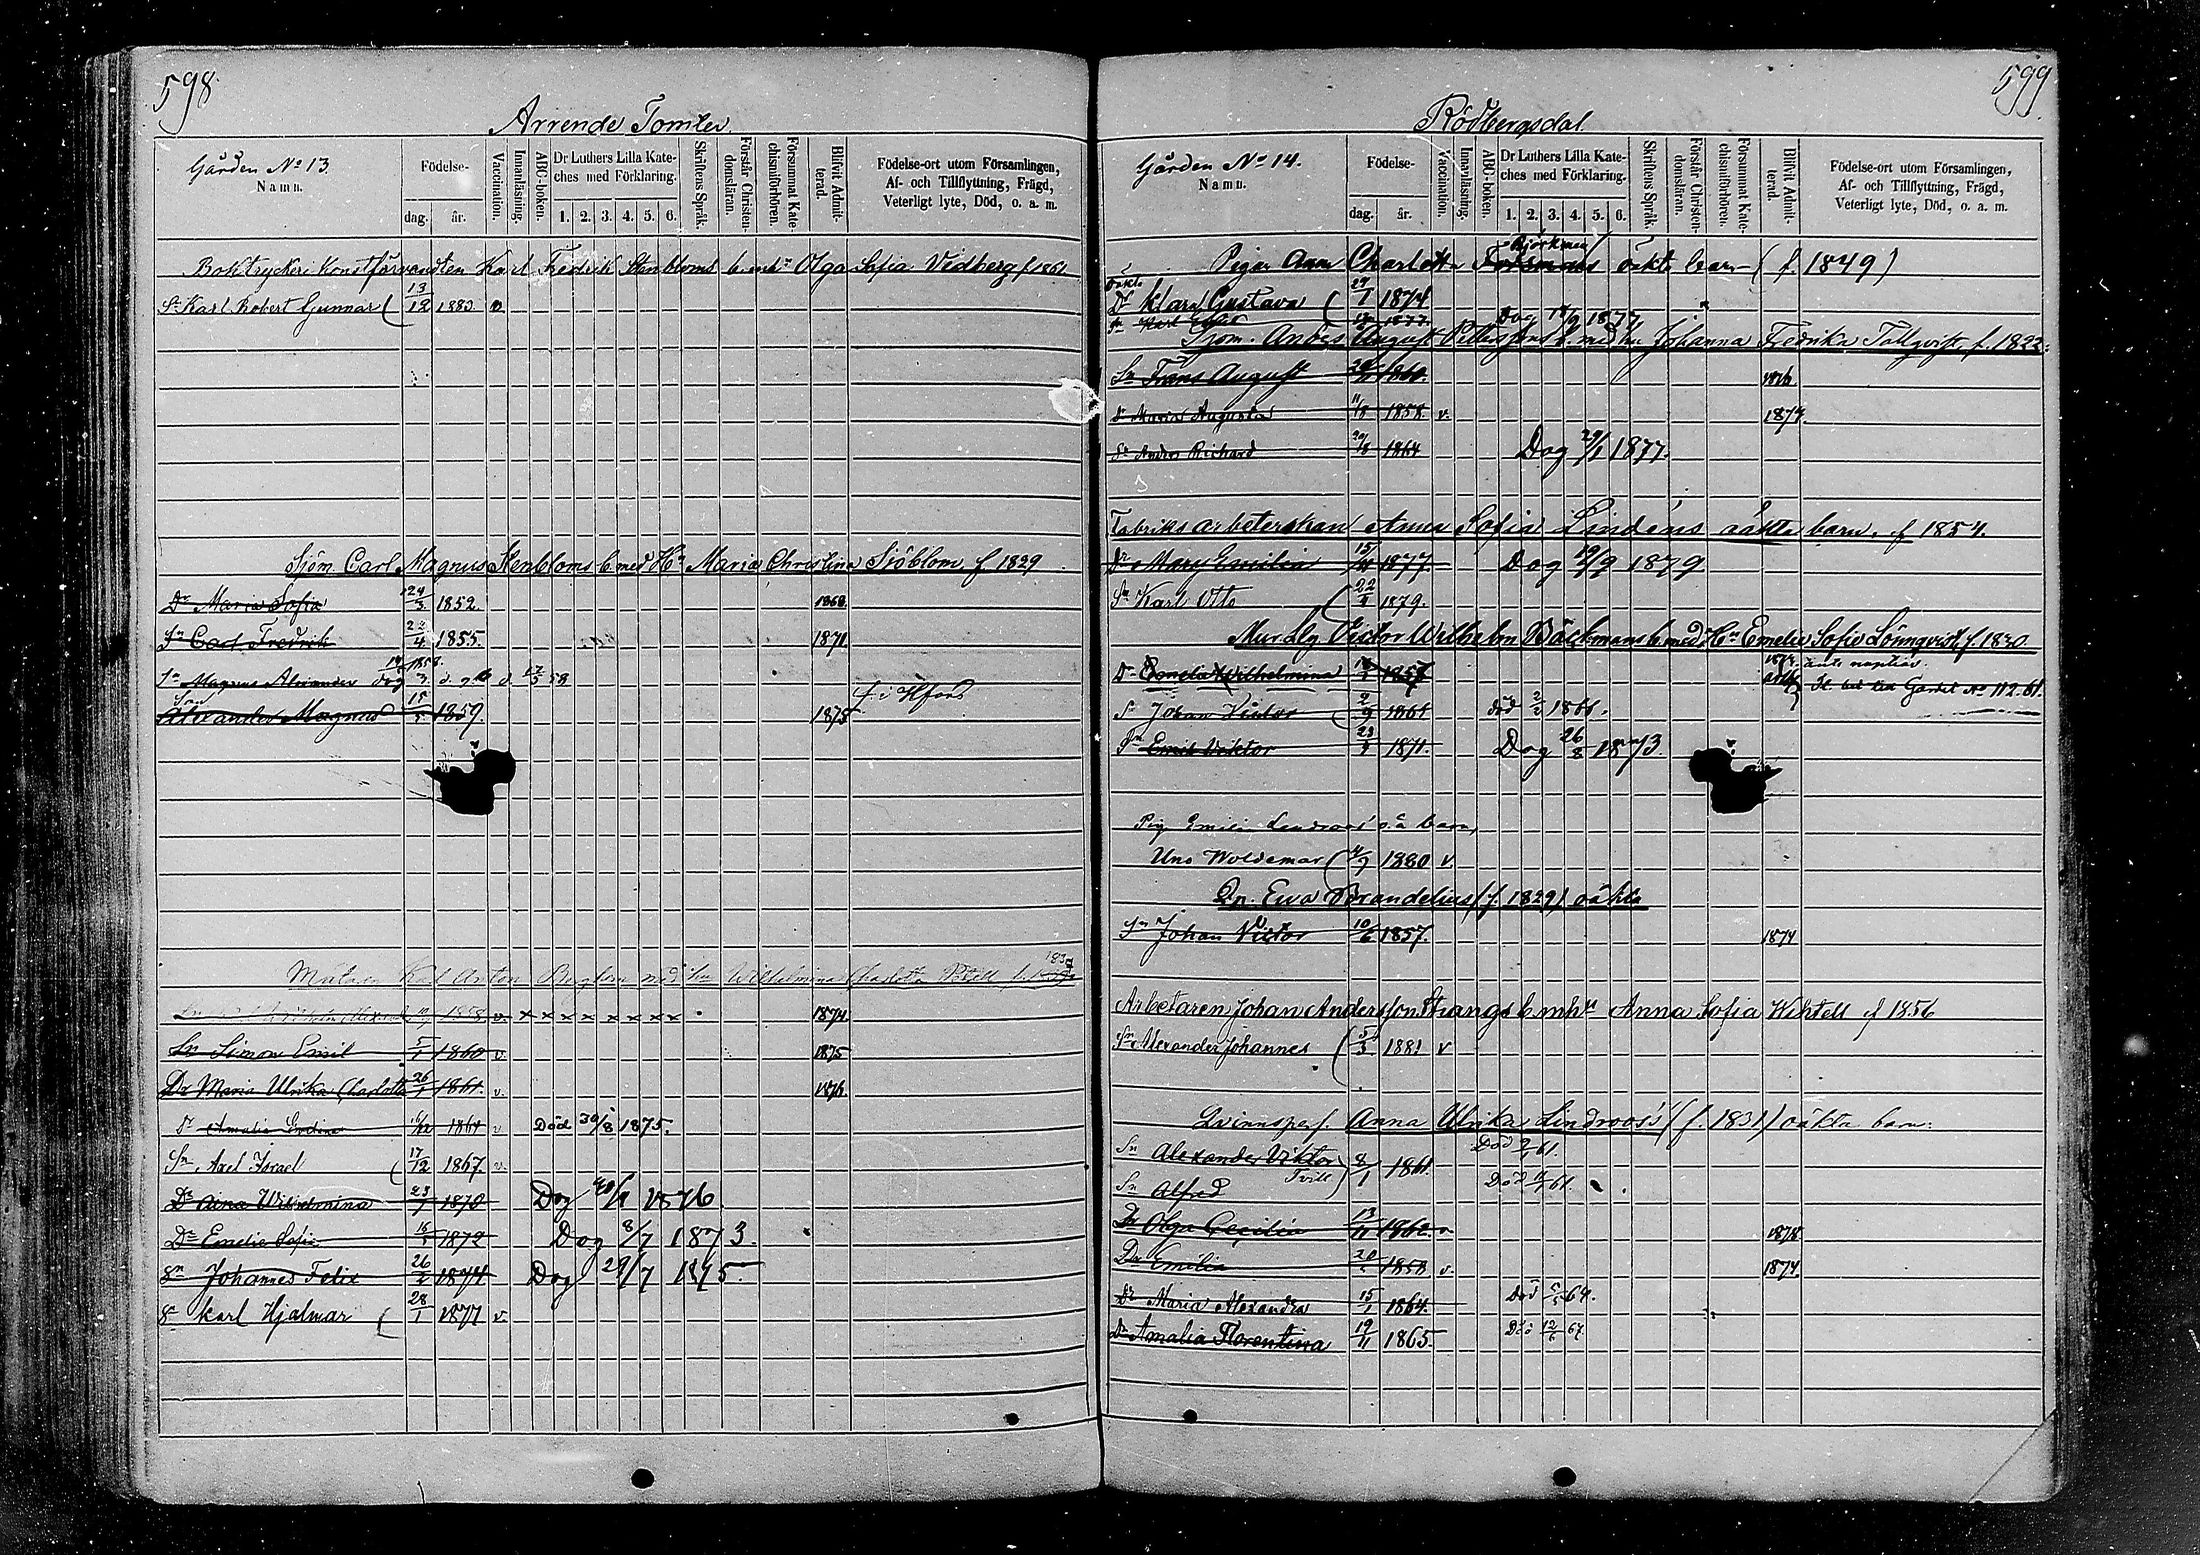 598
Arrende Tomter
Gården No 13.
Namn.
Födelse-
dag.
år.
Vaccination.
Innanläsning.
ABC-boken.
Dr Luthers Lilla Kate-
ches med Förklaring.
1. 2. 3. 4. 5. 6.
Skriftens Språk.
Förstår Christen-
domsläran.
Försummat Kate-
chismiförhören.
Blifvit Admit-
terad.
Födelse-ort utom Församlingen,
Af- och Tillflyttning, Frägd,
Veterligt lyte, Död, o. a. m.
Boktryckeri Konstförvandten Karl Fredrik Stenbloms b. mhu Olga Sofia Vidberg f 1861
Sn Karl Robert Gunnar 13/12 1883. v
Sjöm Carl Magnus Stenbloms b med Hu Maria Christina Sjöblom f 1829
Dr Maria Sofia 24/3 1852. 1868.
Sn Carl Fredrik 22/4 1855. 1871.
Sn Magnus Alexander 1858. d. 17/5 58
Son Alexander Magnus 15/5 1859. 1875 f. i Hfors
Målaren Karl Anton med hu Wilhelmina Charlotta f.
1858 v. x x x x x x x x 1874
Sn Simon Emil 5/1 1860 v. 1875
Dr Maria Ulrika Charlotta 26/1 1861. v. 1876
Dr Amalia 1864 v Död 30/8 1875.
Sn Axel Israel 17/12 1867. v.
Dr Aina Wilhelmina 23/7 1870 Dog 1876
Dr Emelie Sofia 1872 Dog 8/7 1873.
Sn Johannes Felix 26/2 1874 Dog 29/7 1875
Sn Karl Hjalmar 28/1 1877 v.
599
Rödbergsdal.
Gården No 14.
Namn.
Födelse-
dag.
år.
Vaccination.
Innanläsning.
ABC-boken.
Dr Luthers Lilla Kate-
ches med Förklaring.
1. 2. 3. 4. 5. 6.
Skriftens Språk.
Förstår Christen-
domsläran.
Försummat Kate-
chismiförhören.
Blifvit Admit-
terad.
Födelse-ort utom Församlingen,
Af- och Tillflyttning, Frägd,
Veterligt lyte, Död, o. a. m.
Björkman
Pigan Anna Charlotta oäkta barn (f. 1849)
oäkta
Dr Klara Gustava 29/1 1874
Sn Karl 1877. Dog 18/9 1877
Sjöm. Anders August Pettersson b. med hu Johanna Fredrika Tallqvist f. 1822.
Sn Frans August 1860. 1876
Dr Maria Augusta 11/8 1858 v. 1874.
Sn Anders Richard 20/8 1864 Dog 29/1 1877.
Fabriks arbeterskan Anna Sofia Lindéns oäkta barn. f 1854.
Dr Mary Emilia 15/11 1877 Dog 19/9 1879
Sn Karl Otto 22/9 1879.
Mur Llg Victor Wilhelm Bäckmans b med Hu Emelie Sofie Lönnqvist f. 1830
Dr Emelie Wilhelmina 1857 1874
Gården No 112. 61.
Sn Johan Victor 2/9 1864 död 2/2 1866.
Sn Emil Viktor 23/7 1871 Dog 26/8 1873.
Pig. Emilie Lindroos' o.ä barn,
Uno Woldemar 4/7 1880 v.
Qp. Ewa Brandelius (f. 1829) oäkta
Sn Johan Victor 10/6 1857. 1874
Arbetaren Johan Andersson Strangs b mhu Anna Sofia Wihtell f 1856
Sn Alexander Johannes 5/3 1881 v
Qvinnspers. Anna Ulrika Lindroos's (f. 1831) oäkta barn:
Sn Alexander Viktor 8/1 1861 Död 61.
Tvill
Sn Alfred Död 61.
Dr Olga Cecilia 13/11 1862. v. 1878
Dr Emilia 1858 v. 1874.
Dr Maria Alexandra 15/1 1864. Död 64.
Dr Amalia Florentina 19/11 1865. Död 12/6 67.